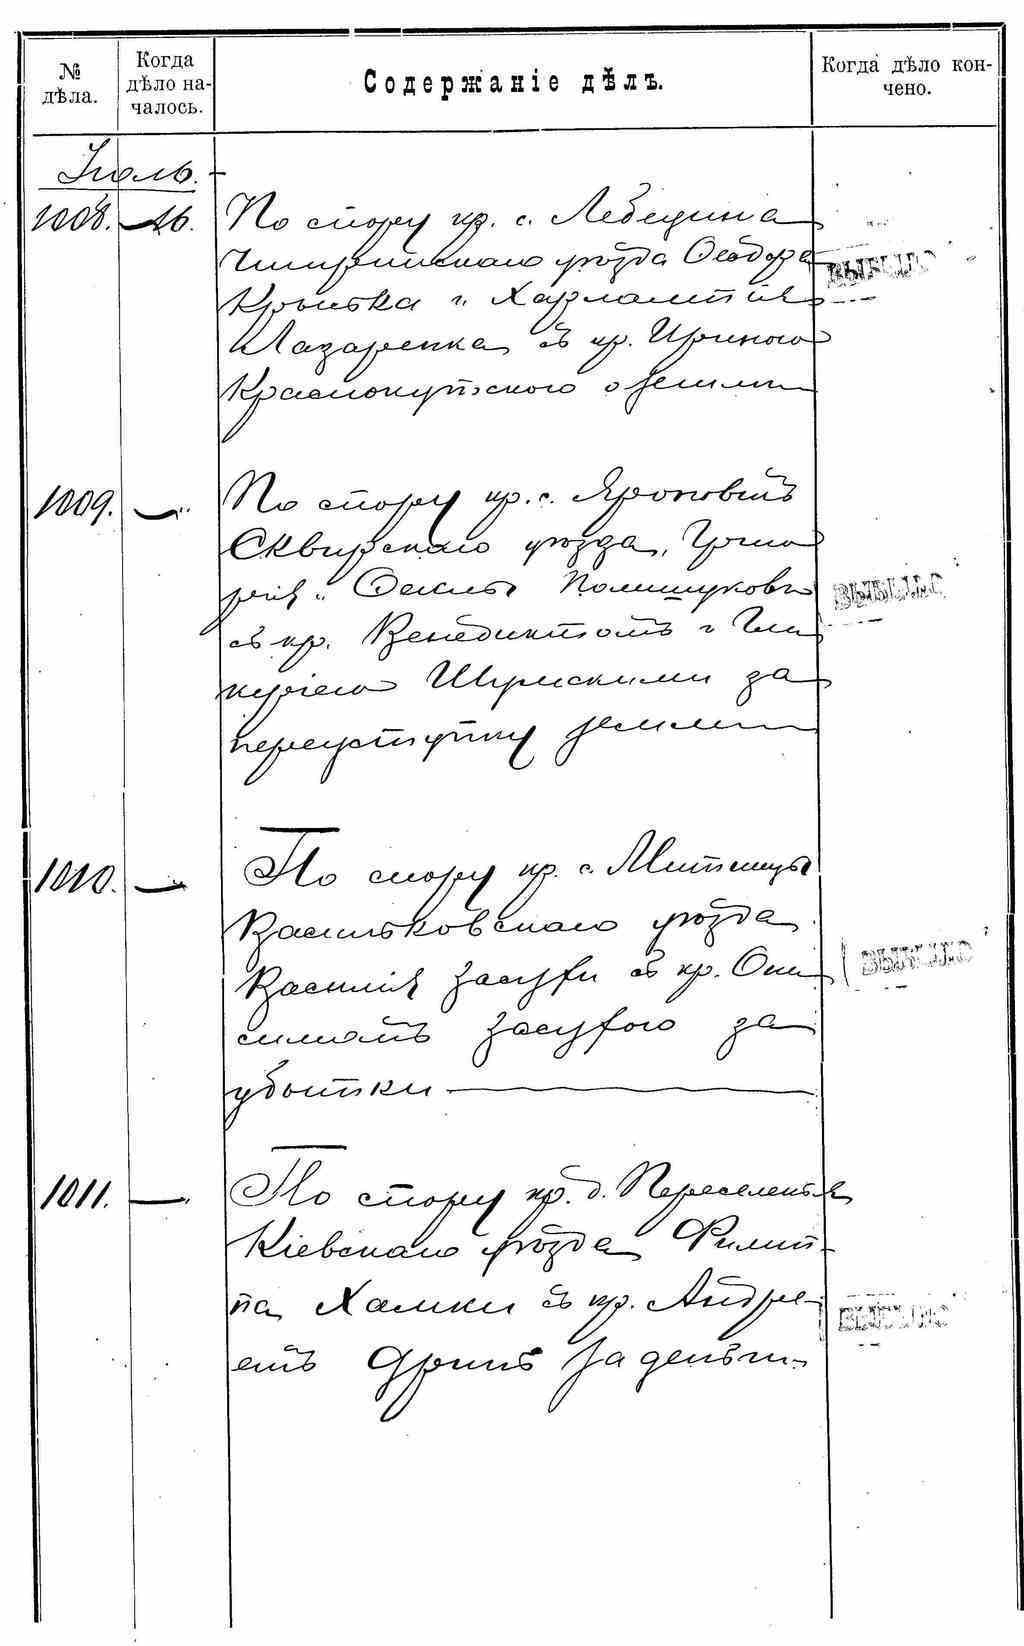 № дѣла.
Когда дѣло на-
чалось.
Содержаніе дѣлъ.
Когда дѣло кон-
чено.
Іюль.
1008. 16. По спору кр. с. Лебедина
Чигиринскаго уѣзда Ѳеодора
Крытка и Харлампія
Лазаренка съ кр. Ириною
Краснокутскою о земли
ВЫБЫЛО
1009. — По спору кр. с. Яроповичъ
Сквирскаго уѣзда, Григо
рія и Ѳеклы Полищуковъ
съ кр. Венедиктомъ и Гли
керіею Шумскими за
переуступку земли
ВЫБЫЛО
1010. — По спору кр. с. Митницы
Васильковскаго уѣзда
Василія Засухи съ кр. Они
симомъ Засухою за
убытки
ВЫБЫЛО
1011. — По спору кр. д. Переселенія
Кіевскаго уѣзда Филип-
па Хамки съ кр. Андре-
емъ за деньги
ВЫБЫЛО